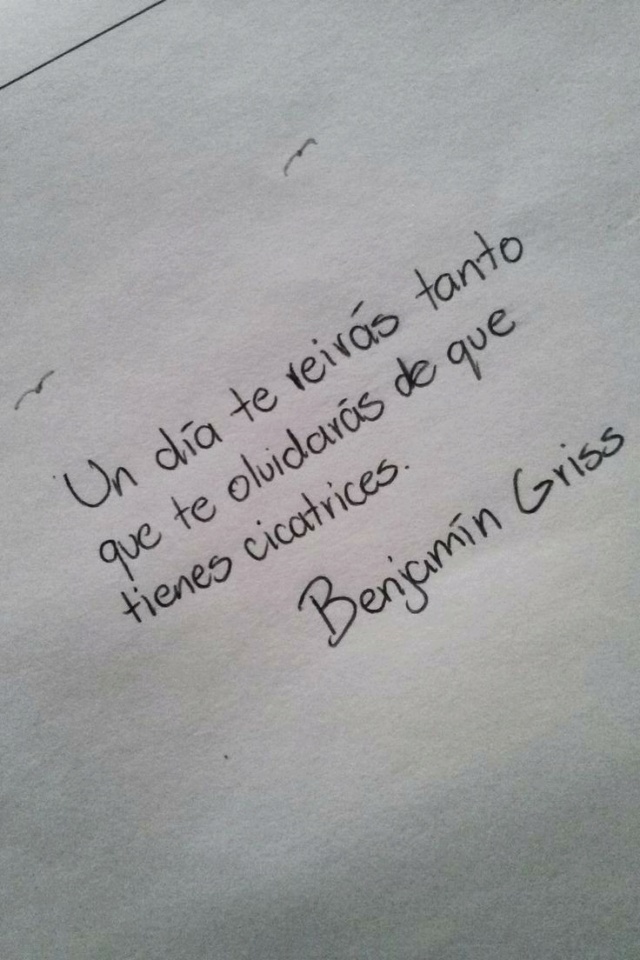 Un día te reirás tanto
que te olvidarás de que
tienes cicatrices.
Benjamín Griss